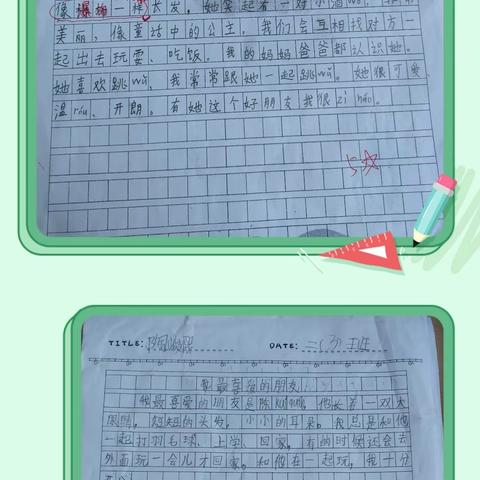 像瀑布一样长发，她笑起来一对小酒wō，
美丽，像童话中的公主。我们会互相找对方一
起出去玩耍、吃饭，我的妈妈爸爸都认识她。
她喜欢跳wǔ，我常常跟她一起跳wǔ。她很可爱、
温róu、开朗。有她这个好朋友我很zì háo。
5☆
TITLE: DATE: 二(3)班
我最喜爱的朋友
我最喜爱的朋友是陈，他长着一双大
眼睛，短短的头发，小小的耳朵。我总是和他
一起打羽毛球、上学、回家。有的时候还会去
外面玩一会儿才回家。和他在一起玩，我十分
开心